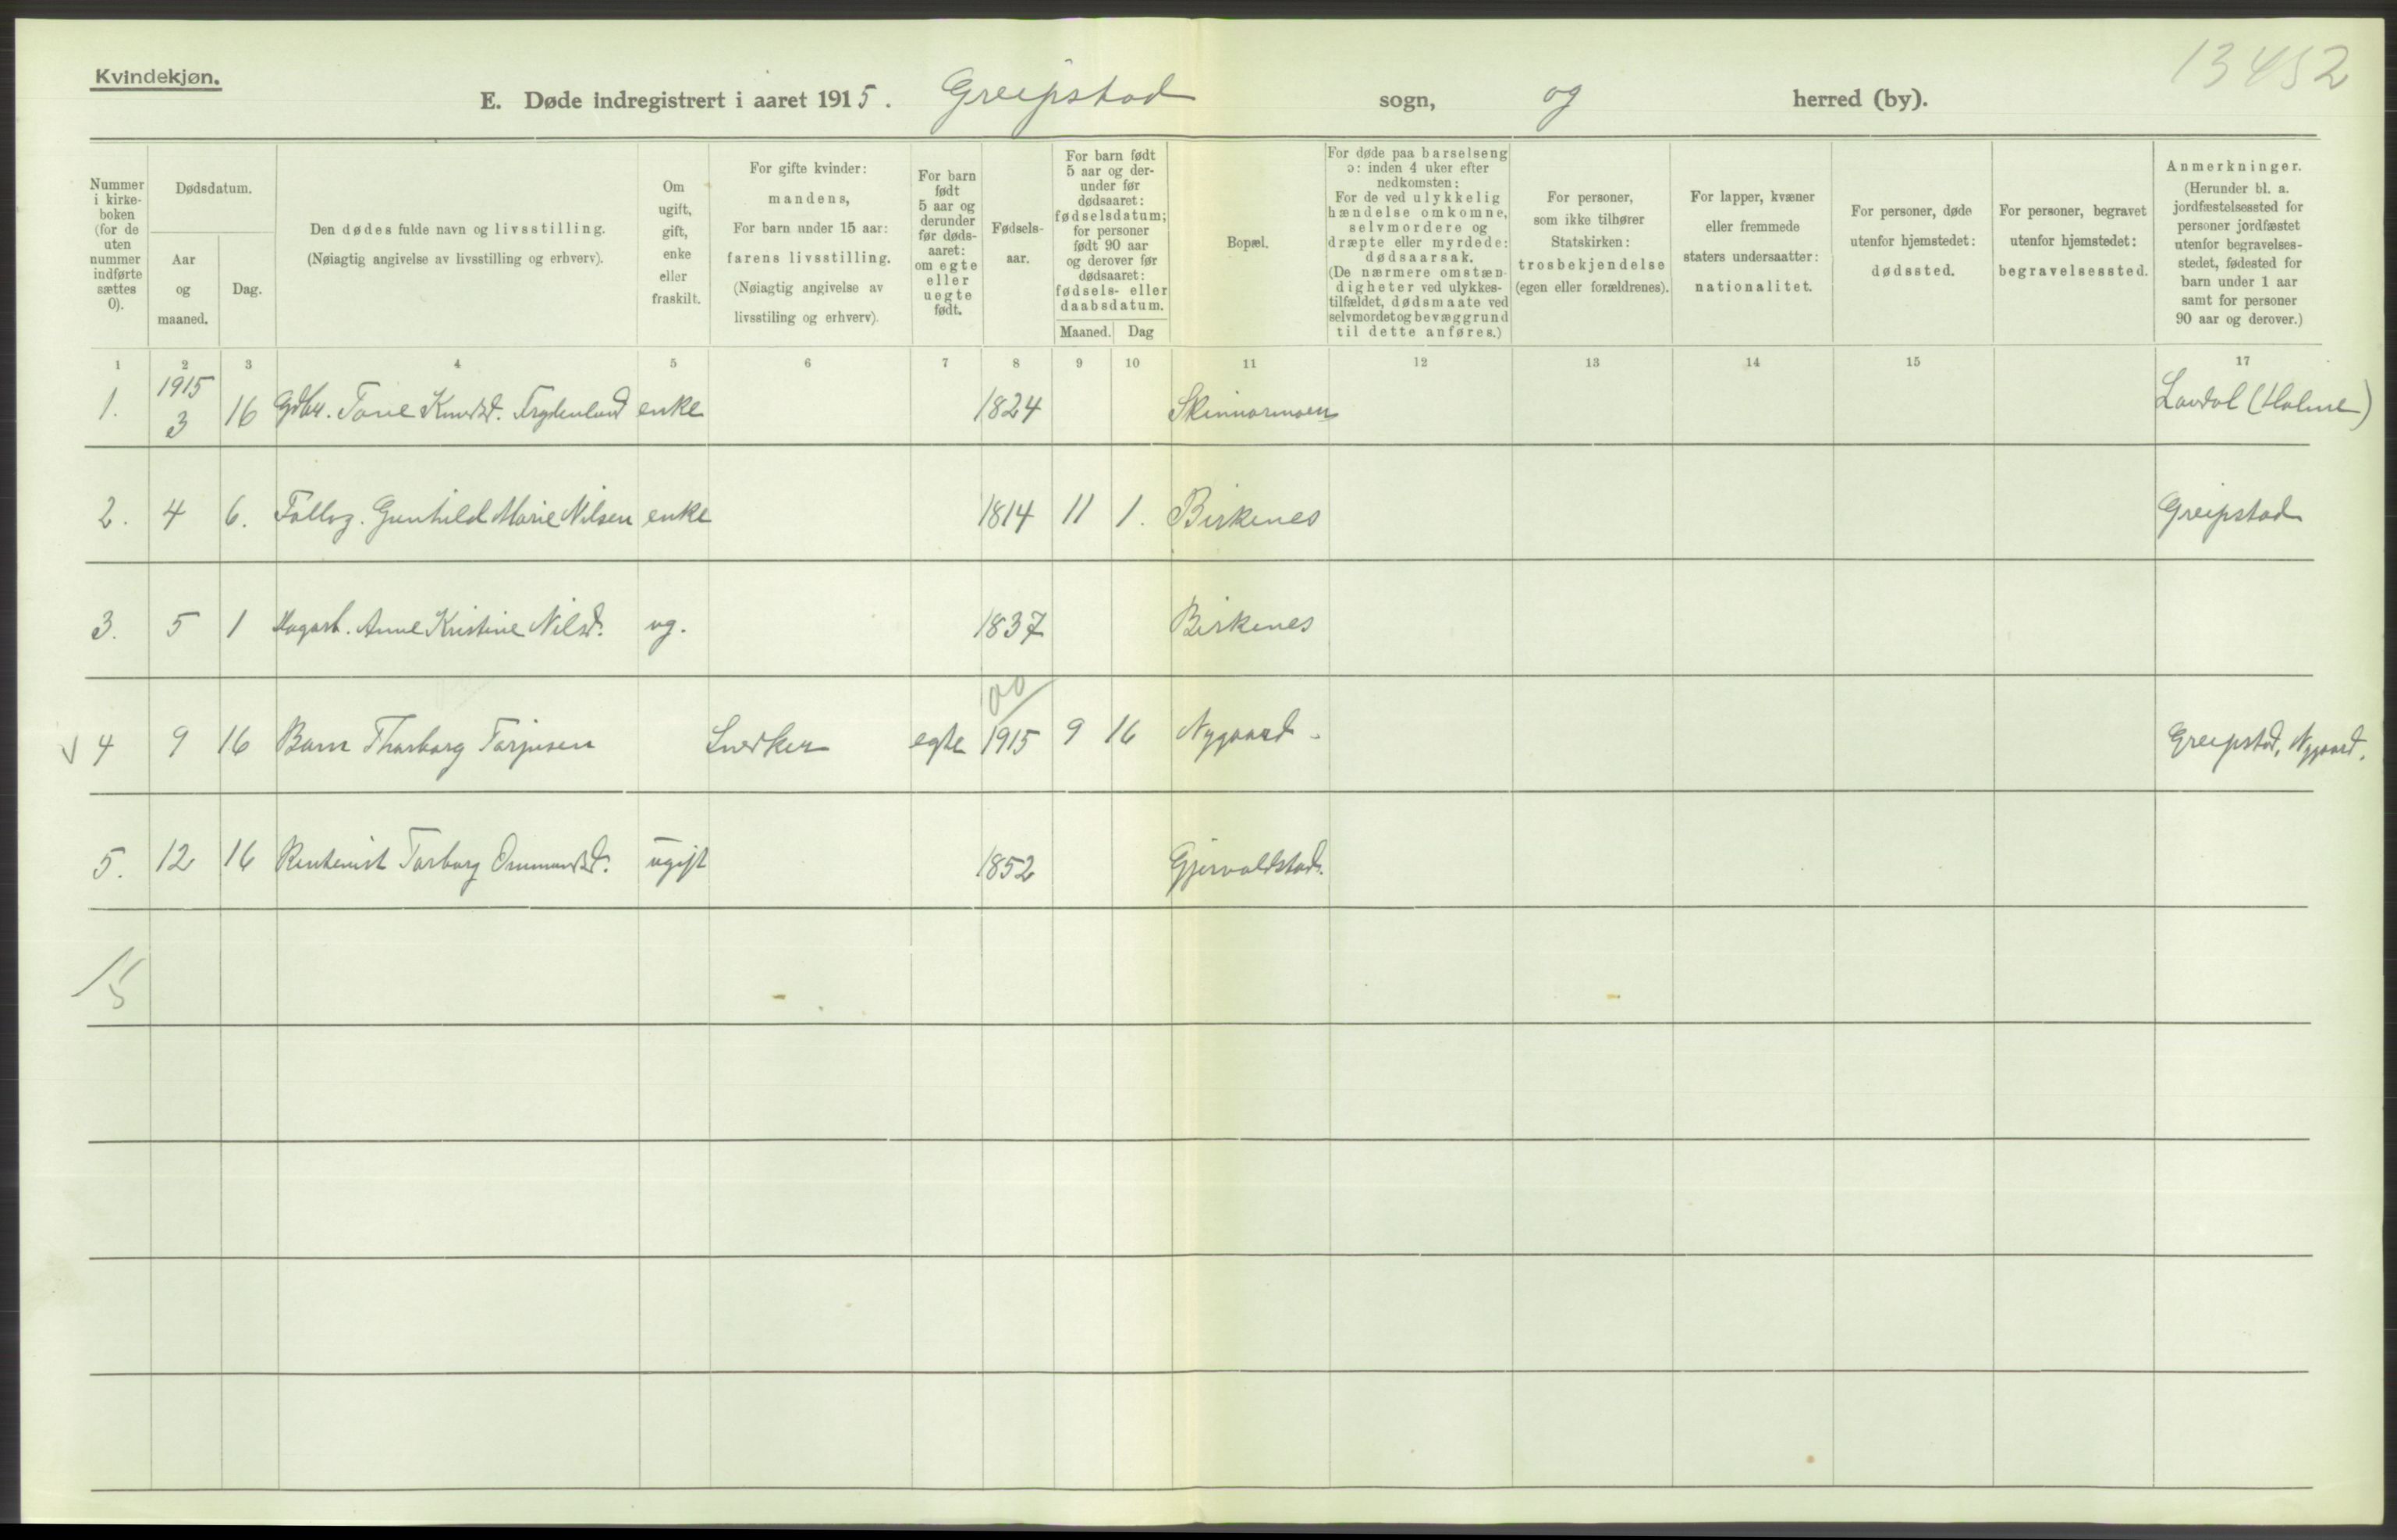 13452
Kvindekjøn.
E. Døde indregistrert i aaret 1915. Greipstad sogn, og herred (by).
Nummer
i kirke-
boken
(for de
uten
nummer
indførte
sættes
0).
Dødsdatum.
Aar
og
maaned.
Dag.
Den dødes fulde navn og livsstilling.
(Nøiagtig angivelse av livsstilling og erhverv).
Om
ugift,
gift,
enke
eller
fraskilt.
For gifte kvinder:
mandens,
For barn under 15 aar:
farens livsstilling.
(Nøiagtig angivelse av
livsstiling og erhverv).
For barn
født
5 aar og
derunder
før døds-
aaret:
om egte
eller
uegte
født.
Fødsels-
aar.
For barn født
5 aar og der-
under før
dødsaaret:
fødselsdatum;
for personer
født 90 aar
og derover før
dødsaaret:
fødsels- eller
daabsdatum.
Maaned. Dag
Bopæl.
For døde paa barselseng
ɔ: inden 4 uker efter
nedkomsten:
For de ved ulykkelig
hændelse omkomne,
selvmordere og
dræpte eller myrdede:
dødsaarsak.
(De nærmere omstæn-
digheter ved ulykkes-
tilfældet, dødsmaate ved
selvmordet og bevæggrund
til dette anføres.)
For personer,
som ikke tilhører
Statskirken:
trosbekjendelse
(egen eller forældrenes).
For lapper, kvæner
eller fremmede
staters undersaatter:
nationalitet.
For personer, døde
utenfor hjemstedet:
dødssted.
For personer, begravet
utenfor hjemstedet:
begravelsessted.
Anmerkninger.
(Herunder bl. a.
jordfæstelsessted for
personer jordfæstet
utenfor begravelses-
stedet, fødested for
barn under 1 aar
samt for personer
90 aar og derover.)
1 2 3 4 5 6 7 8 9 10 11 12 13 14 15 17
1915
1. 3 16 Tone Knudsd. enke 1824 Skinnarmoen Laudal (Holme)
2. 4 6. Gunhild Marie Nilsen enke 1814 11 1. Birkenes Greipstad
3. 5 1 Anne Kristine Nilsd. ug. 1837 Birkenes
00
V 4 9 16 Barn Thorborg Torjusen Snedker egte 1915 9 16 Nygaard Greipstad, Nygaard.
5. 12 16 Rentenist Torborg Osmundsd. ugift 1852 Gjervoldstad.
5